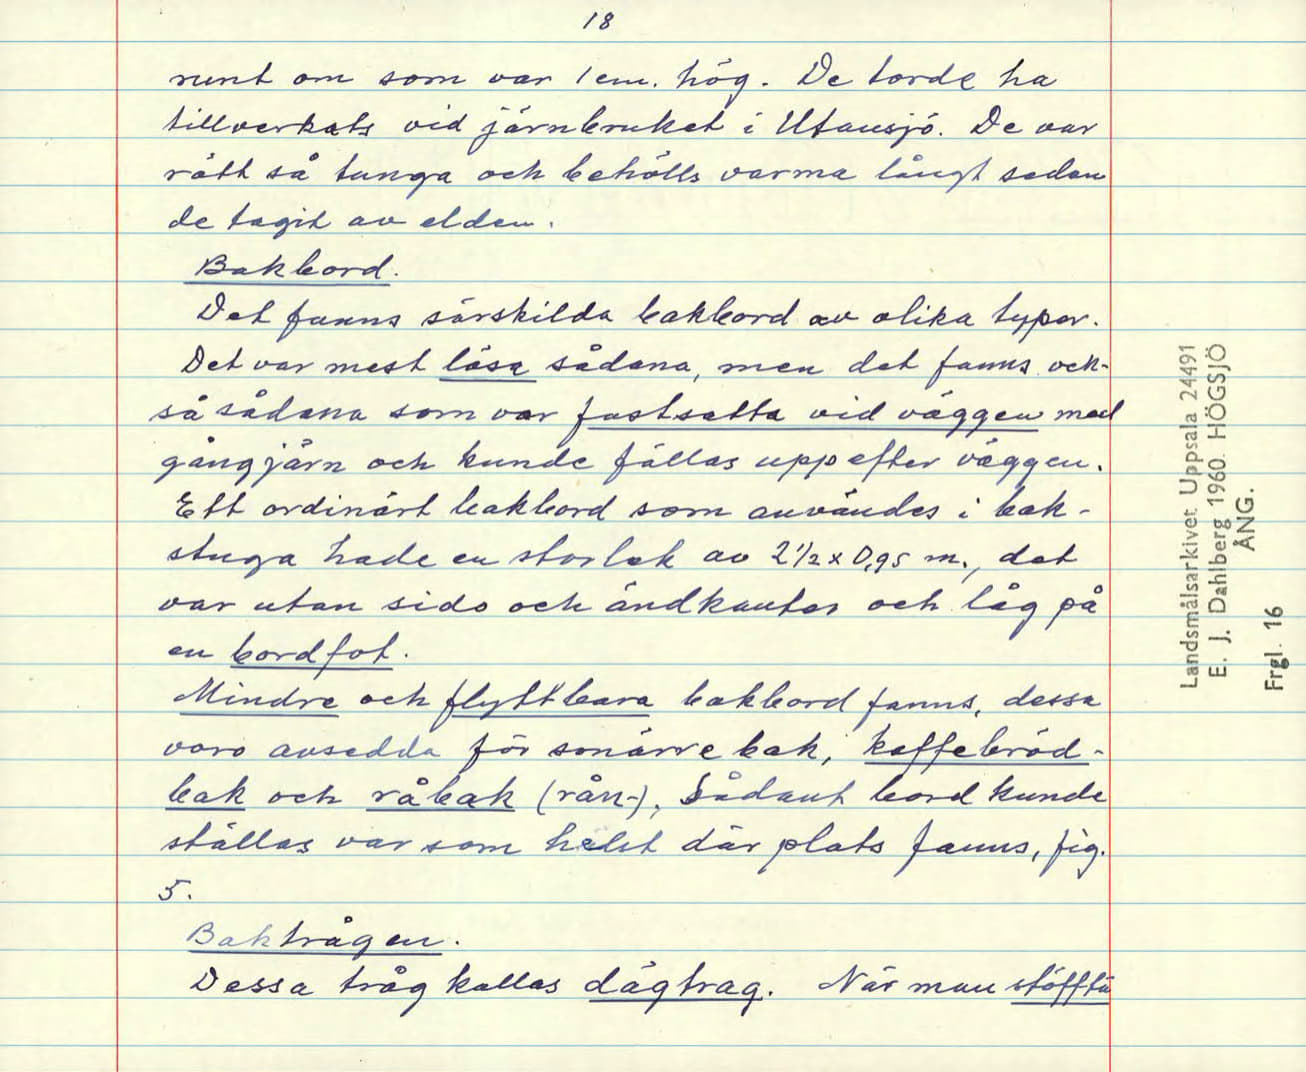 18
runt om som var 1 cm. hög. De torde ha
tillverkats vid järnbruket i Utansjö. De var
rätt så tunga och behölls varma långt sedan
de tagit av elden.
Bakbord.
Det fanns särskilda bakbord av olika typer.
Det var mest lösa sådana, men det fanns ock-
så sådana som var fastsatta vid väggen med
gångjärn och kunde fällas upp efter väggen.
Ett ordinärt bakbord som användes i bak-
stuga hade en storlek av 2 1/2 x 0,95 m., det
var utan sido och ändkanter och låg på
en bordfot.
Mindre och flyttbara bakbord fanns, dessa
voro avsedda för smärre bak, kaffebröd-
bak och råbak (rån-), Sådant bord kunde
ställas var som helst där plats fanns, fig.
5.
Baktrågen.
Dessa tråg kallas dägtrag. När man stöfftä
Landsmålsarkivet Uppsala 24491
E. J. Dahlberg 1960. HÖGSJÖ
ÅNG.
Frgl. 16